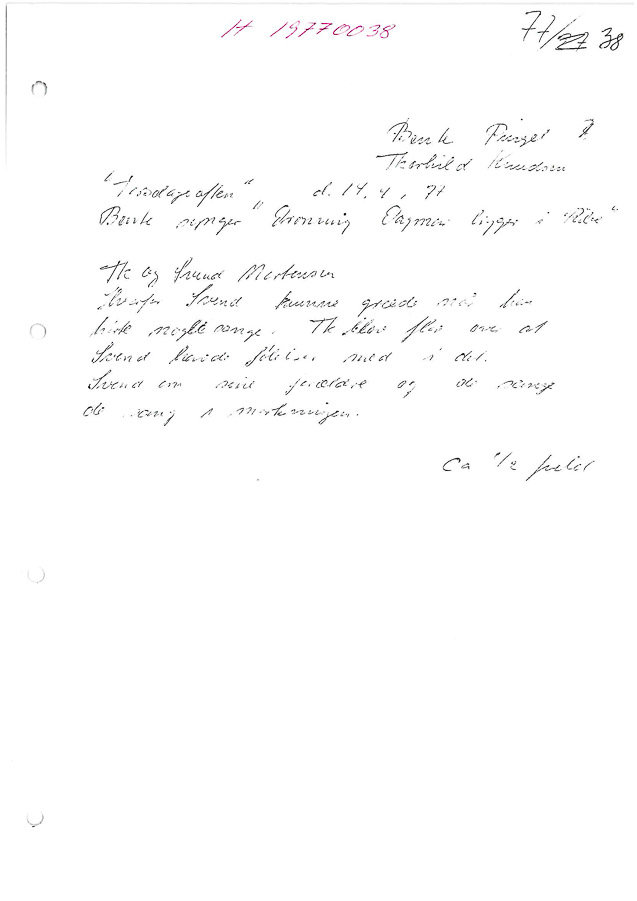 H 19770038
77/27 38
Bente Finge
Thorkild Knudsen
"Torsdag aften" d. 14.4, 77
Bente synger "Dronning Dagmar ligger i Ribe"
TK og Svend Mortensen
Hvorfor Svend kunne græde når han
nogle sange. TK blev flov over at
Svend havde følelser med i det.
Svend om sine forældre og de sange
de sang i mørkningen.
Ca 1/2 fuld